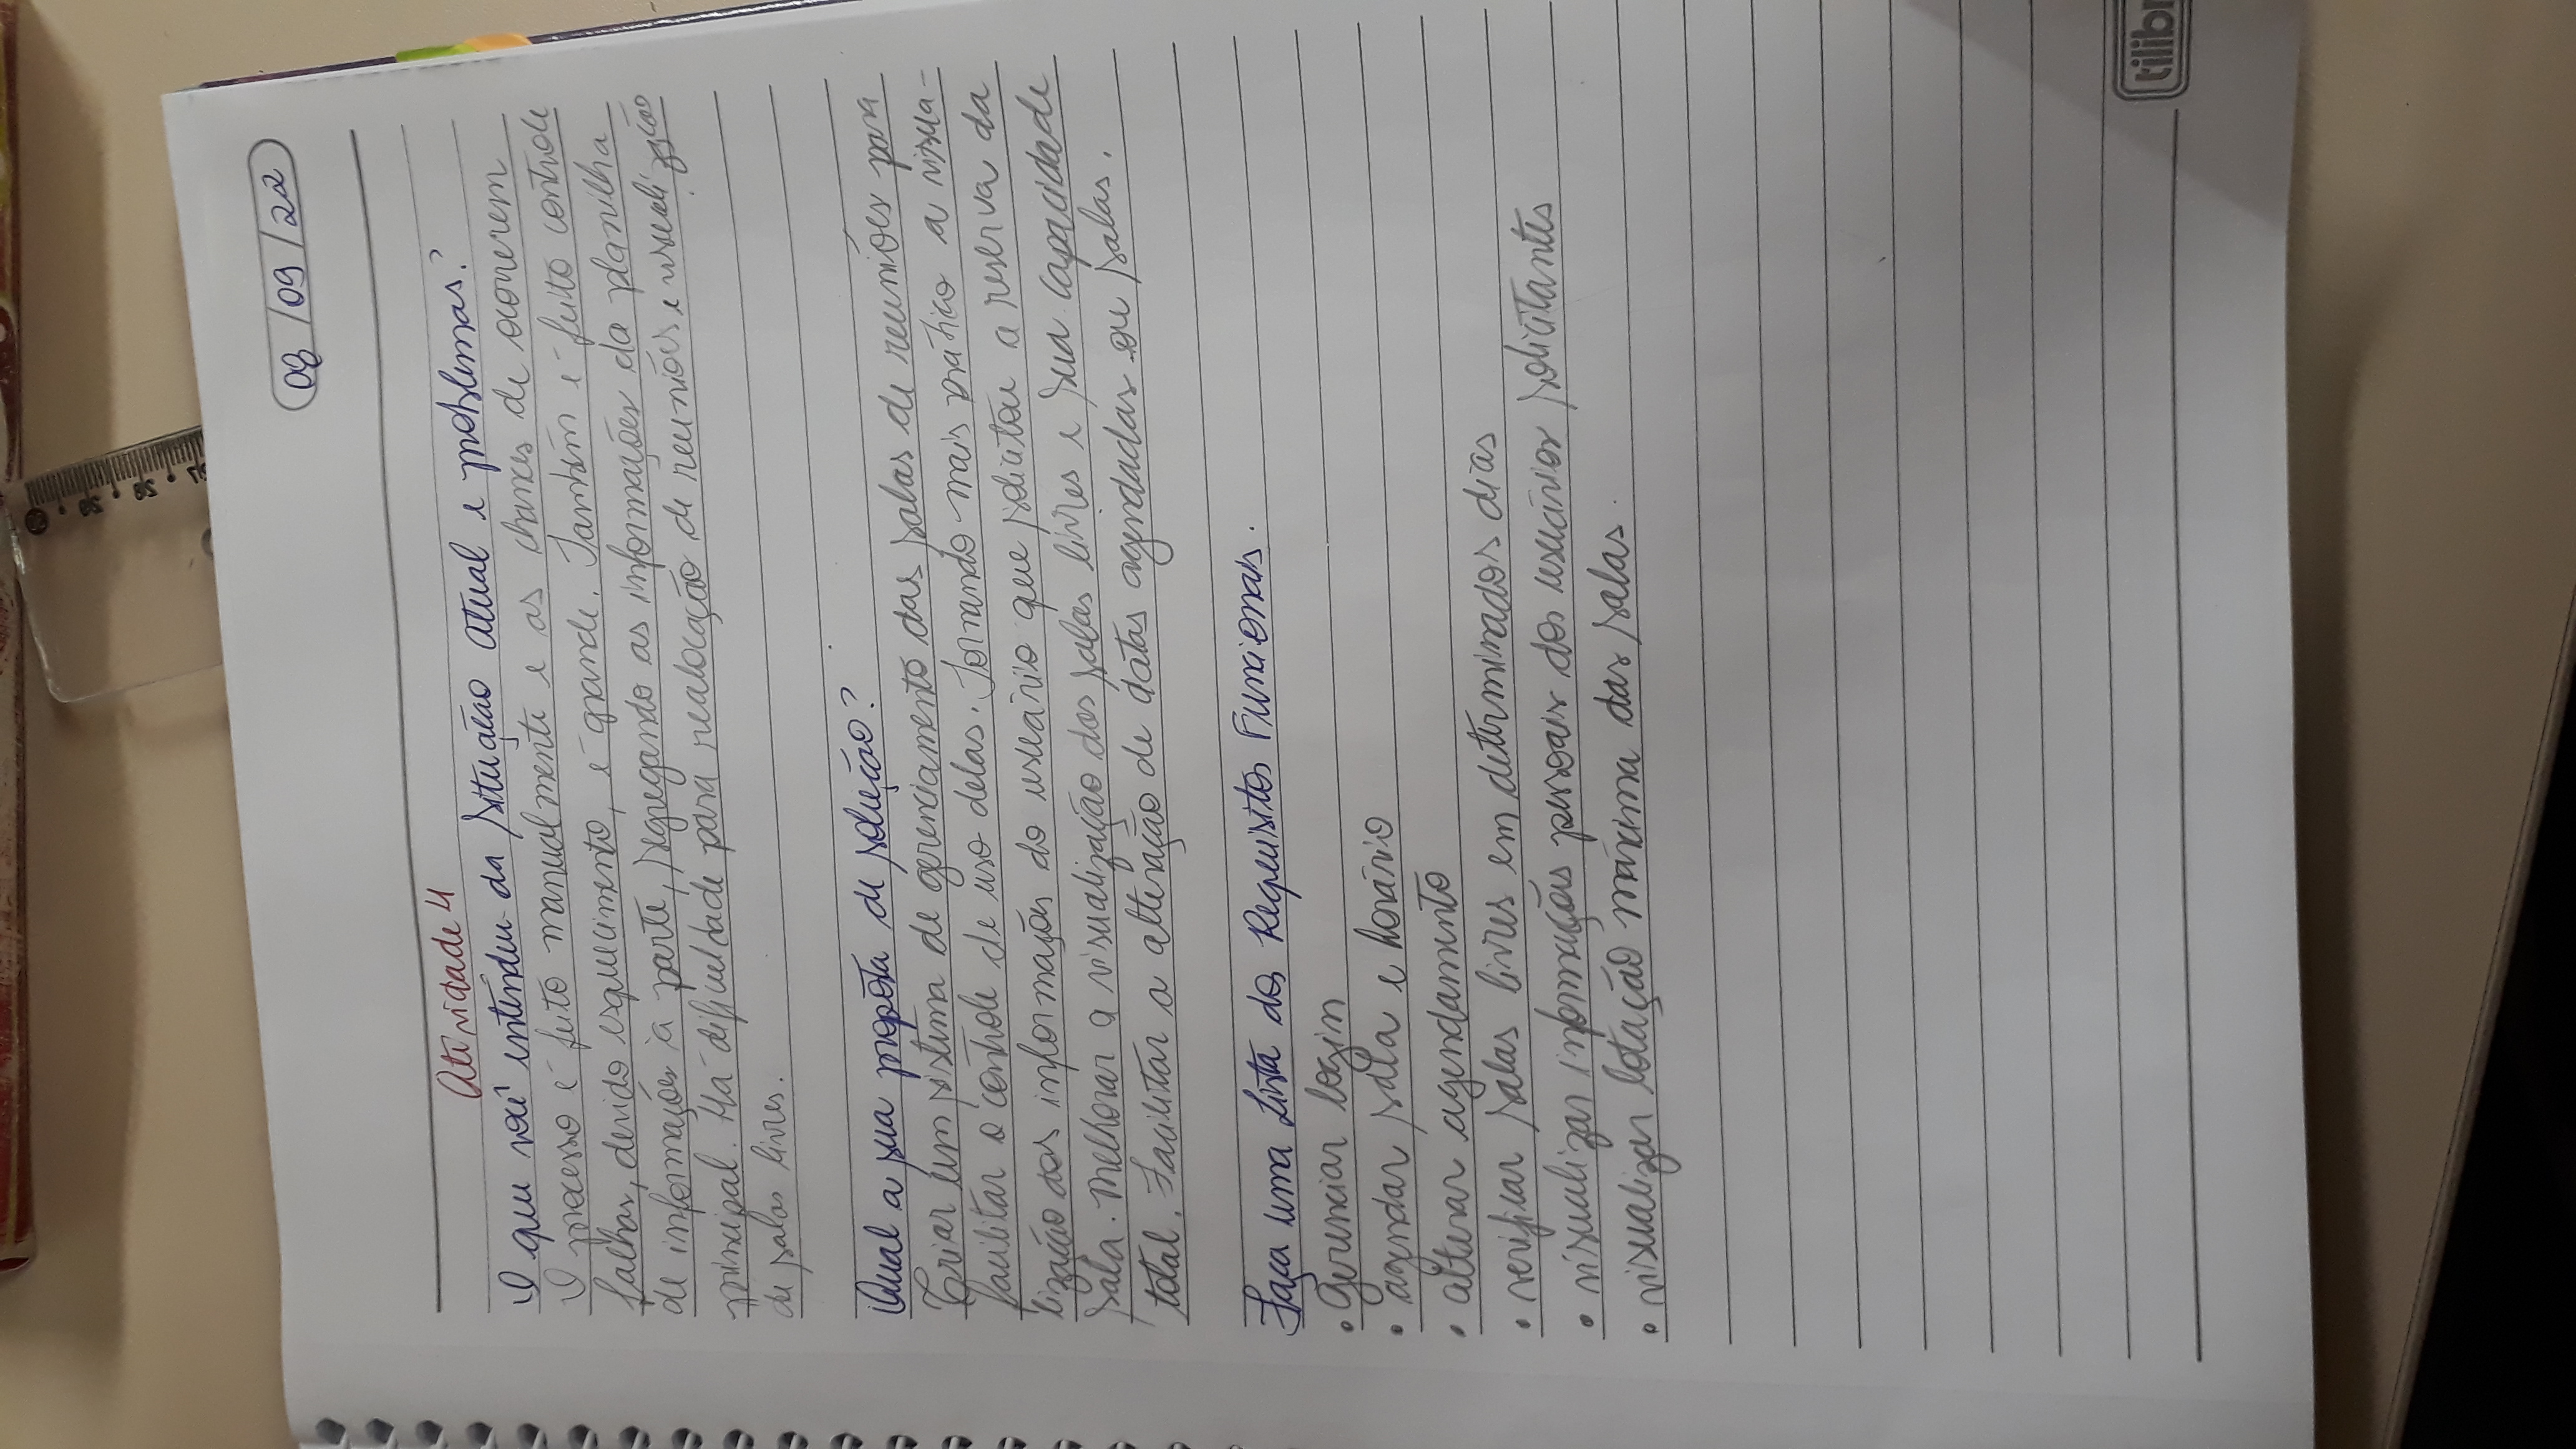 08/09/22
Atividade 4
O que você entendeu da situação atual e problemas?
O processo é feito manualmente e as chances de ocorrerem
falhas, devido esquecimento, é grande. Também é feito controle
de informações à parte, segregando as informações da planilha
principal. Há dificuldade para realocação de reuniões e visualização
de salas livres.
Qual a sua proposta de solução?
Criar um sistema de gerenciamento das salas de reuniões para
facilitar o controle de uso delas. Tornando mais prático a visua-
lização das informações do usuário que solicitou a reserva da
sala. Melhorar a visualização das salas livres e sua capacidade
total. Facilitar a alteração de datas agendadas ou salas.
Faça uma Lista dos Requisitos Funcionais.
• Gerenciar login
• agendar sala e horário
• alterar agendamento
• verificar salas livres em determinados dias
• visualizar informações pessoais dos usuários solicitantes
• visualizar lotação máxima das salas.